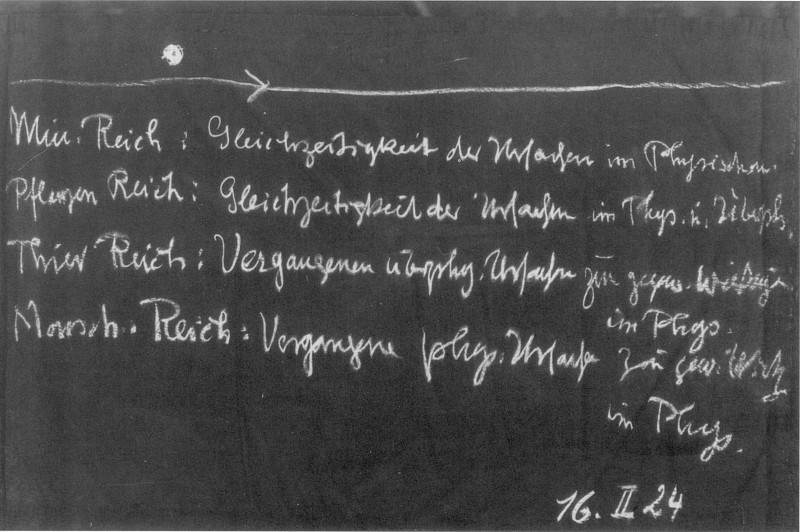 Min. Reich: Gleichzeitigkeit der Ursachen im Physischen.
Pflanzen Reich: Gleichzeitigkeit der Ursachen im Phys. u. Überph.
Thier Reich: Vergangenen überphys. Ursachen zu gegw.
im Phys.
Mensch. Reich: Vergangene phys. Ursache zu gegw.
im Phys.
16. II 24